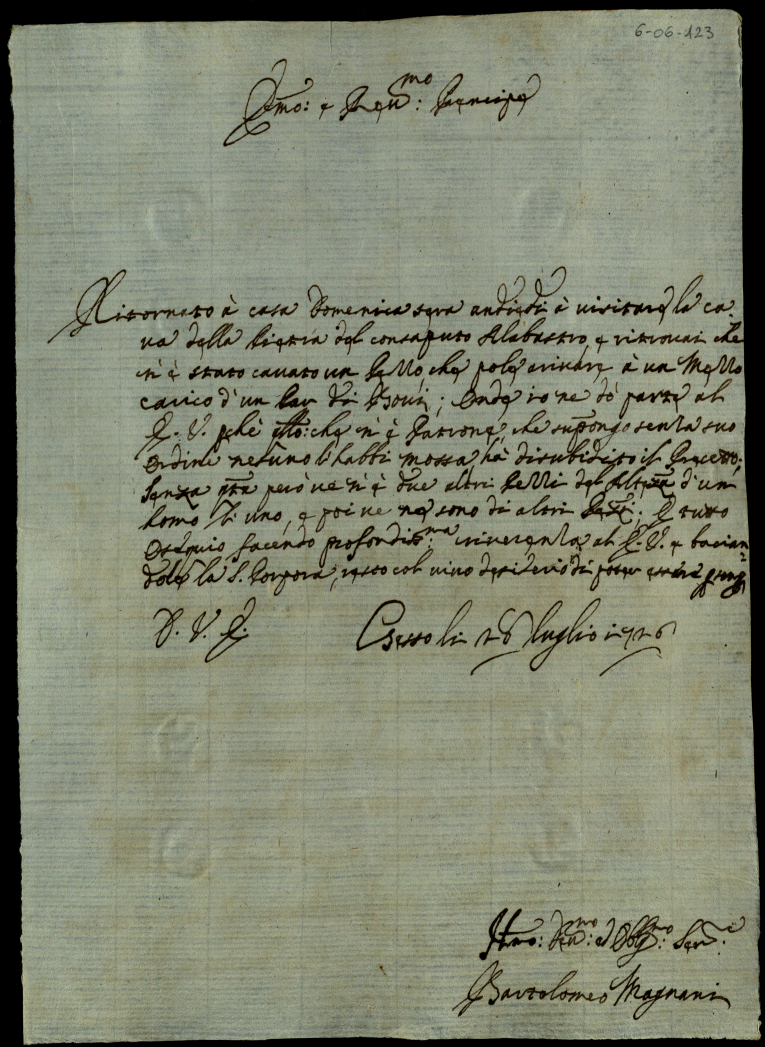 6-06-123
Emo: e Reu:mo Prencipe
Ritornato à casa Domenica sera andiedi à visitare la ca-
va della Pietra del consaputo Alabastro, e ritrovai che
vi è stato cavato un Pezzo che pole arivare à un Mezzo
carico d'un Par di Bovi; Onde io ne dò parte al
E. V. che n'è Patrone, che supongo senza suo
Ordine nesuno l'habbi mossa, hà disubidito il Precetto;
Senza però ve n'è due altri Pezzi de Altezza d'un
homo l'uno, e poi ve ne sono di altri Pezzi; E tutto
Osequio facendo profondis:ma riverenza al E. V. e bacian-
dole la S. Porpora, resto col vivo desiderio di poter essere sempre
D. V. E.
Gesso li 26 luglio 1726
Humo: Deu:mo ed Obg:mo Ser:e
Bartolomeo Magnani